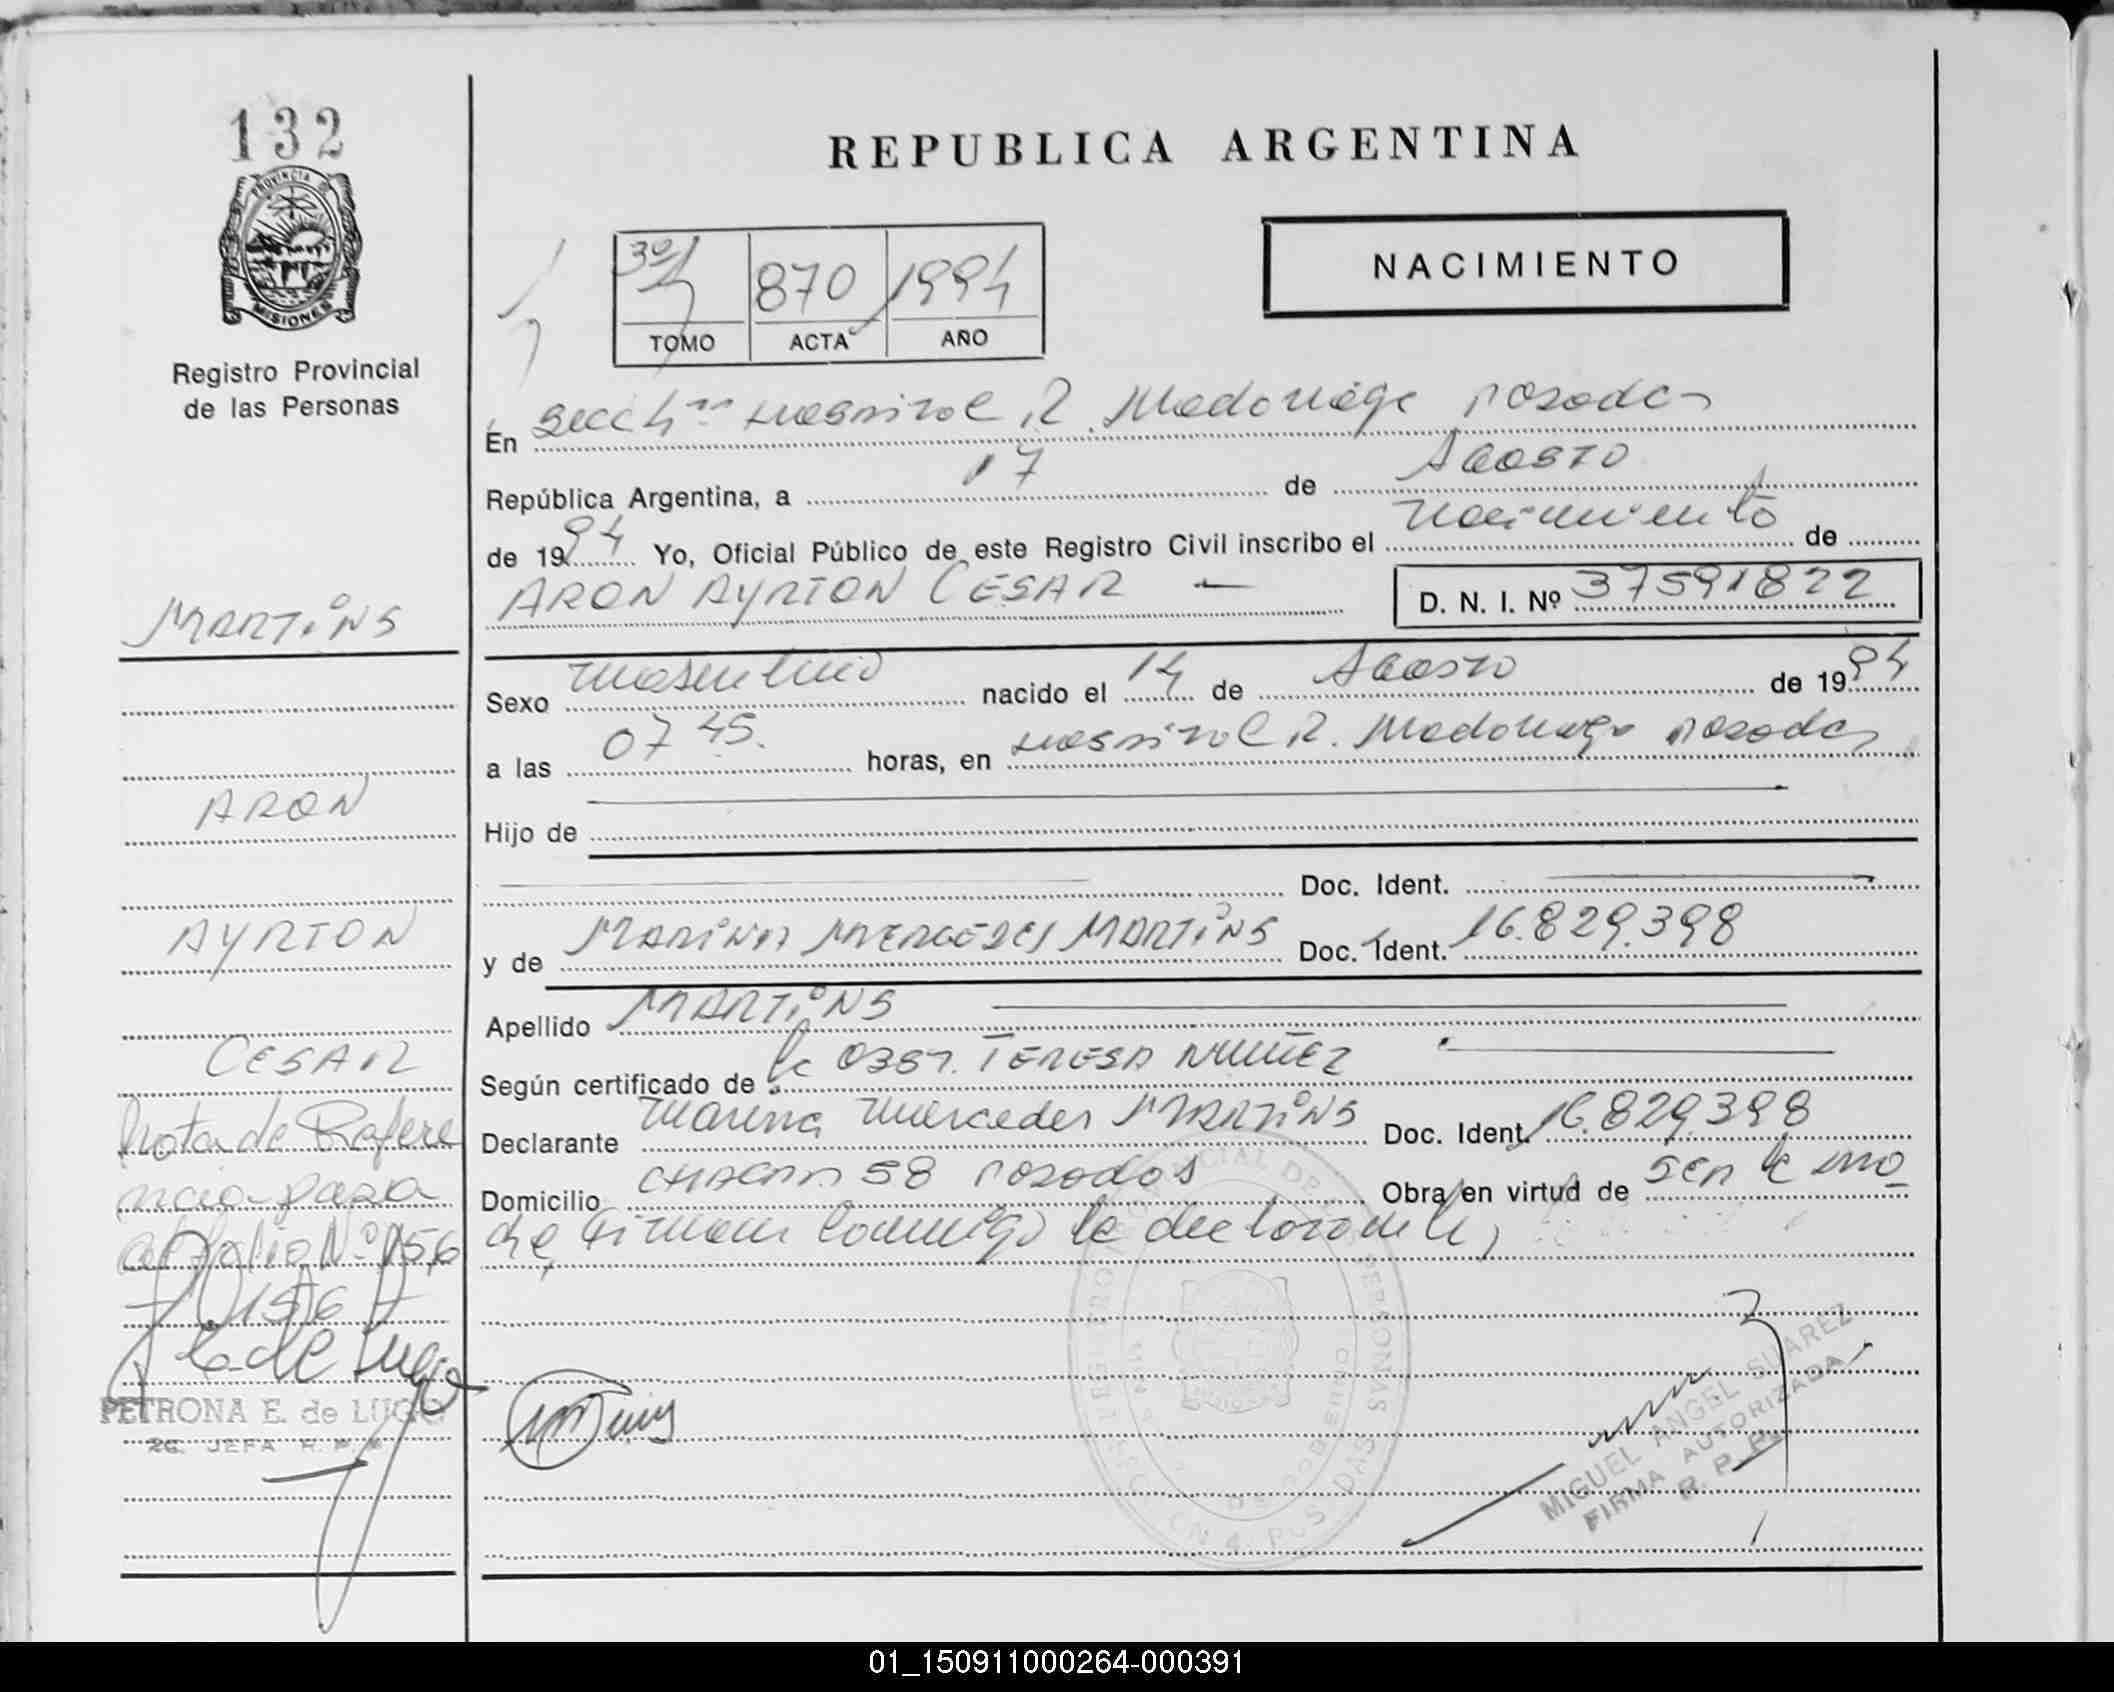 132
PROVINCIA DE
MISIONES
Registro Provincial
de las Personas
REPUBLICA ARGENTINA
NACIMIENTO
3º 870 1994
TOMO ACTA AÑO
En Secc 4ta Hospital R. Madariaga Posadas
República Argentina, a 17 de Agosto
de 1994 Yo, Oficial Público de este Registro Civil inscribo el Nacimiento de
ARON AYRTON CESAR
D. N. I. Nº 37591822
Sexo Masculino nacido el 14 de Agosto de 1994
a las 07 45. horas, en Hospital R. Madariaga Posadas
Hijo de
Doc. Ident.
y de MARINA MERCEDES MARTINS Doc. Ident. 16.829.398
Apellido MARTINS
Según certificado de la Obst. TERESA NUÑEZ
Declarante Marina Mercedes MARTINS Doc. Ident. 16.829.398
Domicilio CHACRA 58 Posadas Obra en virtud de ser la ma
dre, Firman conmigo la declarante,
MARTINS
ARON
AYRTON
CESAR
Nota de Refere
ncia pasa
al folio Nº 156
156
E. de Lugo
PETRONA E. de LUGO
2a. JEFA R. P. P.
MIGUEL ANGEL SUAREZ
FIRMA AUTORIZADA
R. P. P.
01_150911000264-000391